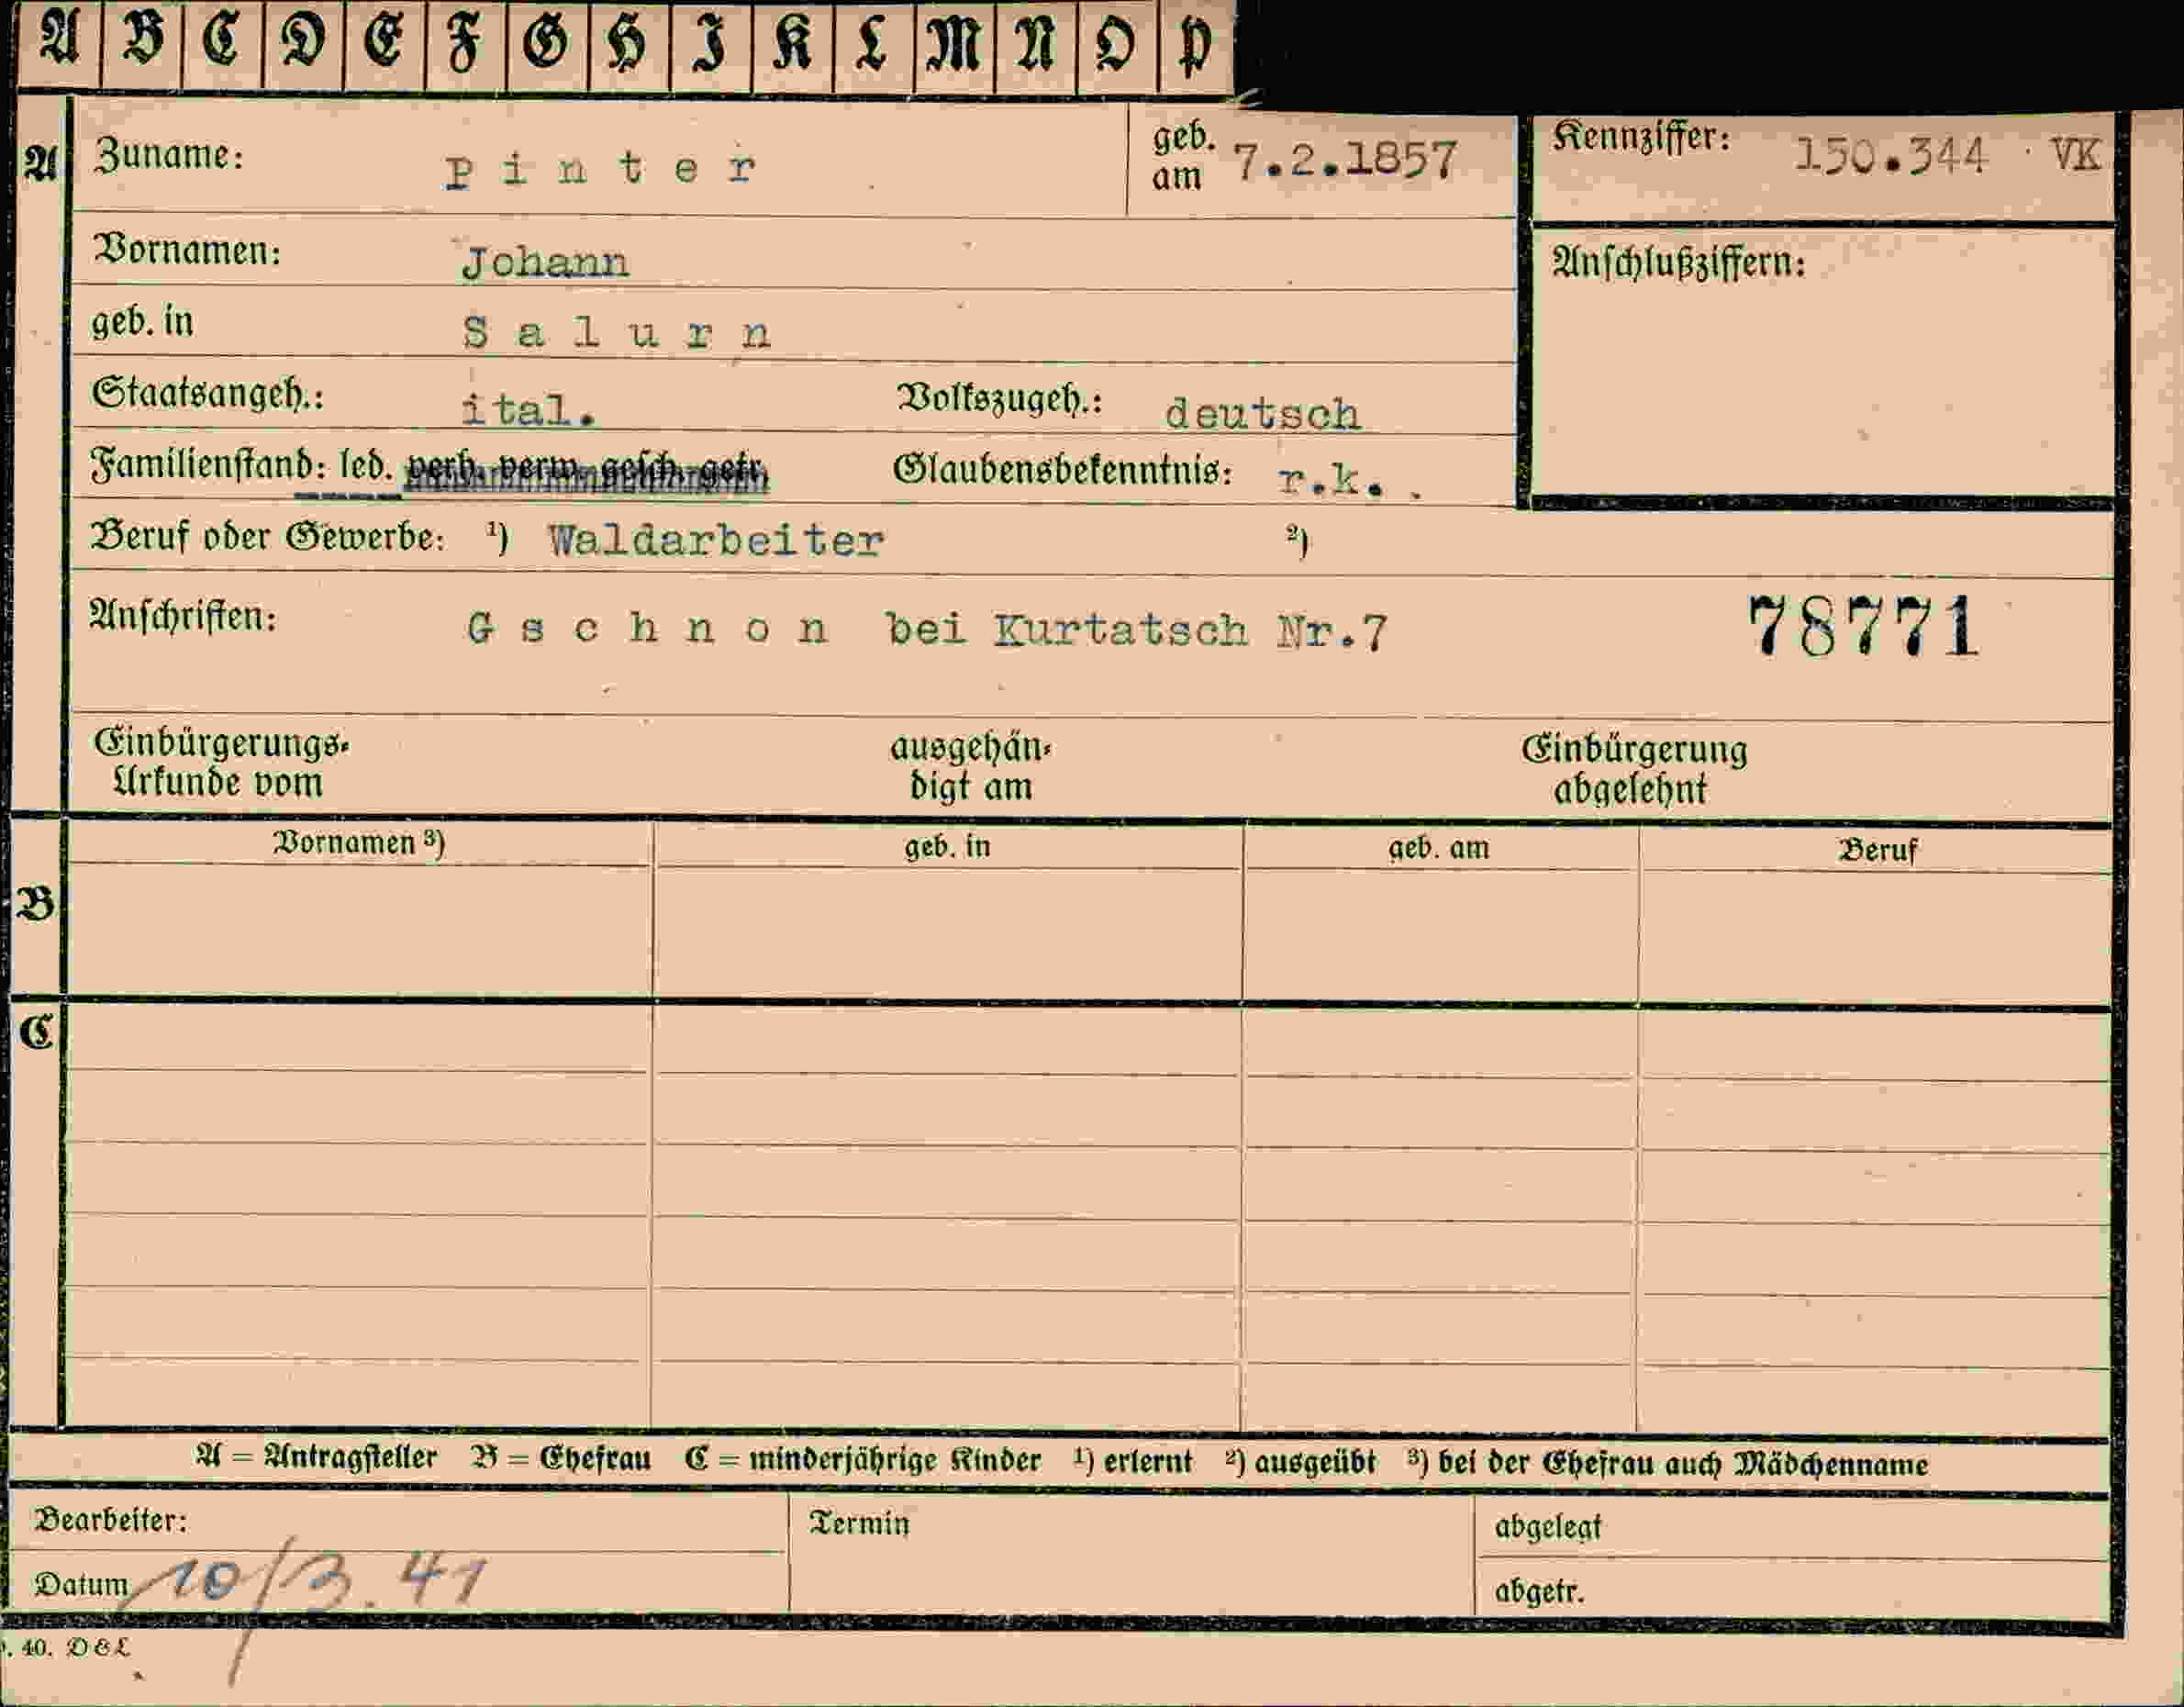 A B C D E F G H I K L M N O P
A Zuname: Pinter geb. am 7.2.1857 Kennziffer: 150.344 VK
Vornamen: Johann Anschlußziffern:
geb. in Salurn
Staatsangeh.: ital. Volkszugeh.: deutsch
Familienstand: led. verh. verw. gesch. getr. Glaubensbekenntnis: r.k.
Beruf oder Gewerbe: ¹) Waldarbeiter ²)
Anschriften: Gschnon bei Kurtatsch Nr.7 78771
Einbürgerungs-Urkunde vom ausgehän-digt am Einbürgerung abgelehnt
Vornamen ³) geb. in geb. am Beruf
B
C
A = Antragsteller B = Ehefrau C = minderjährige Kinder ¹) erlernt ²) ausgeübt ³) bei der Ehefrau auch Mädchenname
Bearbeiter: Termin abgelegt
Datum 10/3.41 abgetr.
. 40. D & L